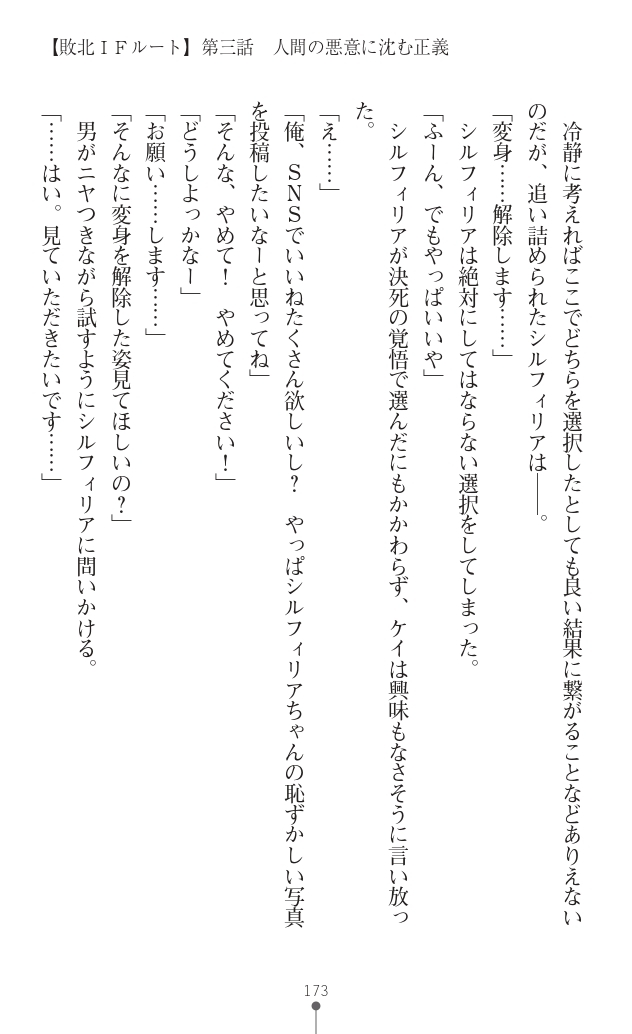 【敗北ＩＦルート】第三話　人間の悪意に沈む正義
　冷静に考えればここでどちらを選択したとしても良い結果に繋がることなどありえない
のだが、追い詰められたシルフィリアは――。
「変身……解除します……」
　シルフィリアは絶対にしてはならない選択をしてしまった。
「ふーん、でもやっぱいいや」
　シルフィリアが決死の覚悟で選んだにもかかわらず、ケイは興味もなさそうに言い放っ
た。
「え……」
「俺、ＳＮＳでいいねたくさん欲しいし？　やっぱシルフィリアちゃんの恥ずかしい写真
を投稿したいなーと思ってね」
「そんな、やめて！　やめてください！」
「どうしよっかなー」
「お願い……します……」
「そんなに変身を解除した姿見てほしいの？」
　男がニヤつきながら試すようにシルフィリアに問いかける。
「……はい。見ていただきたいです……」
173